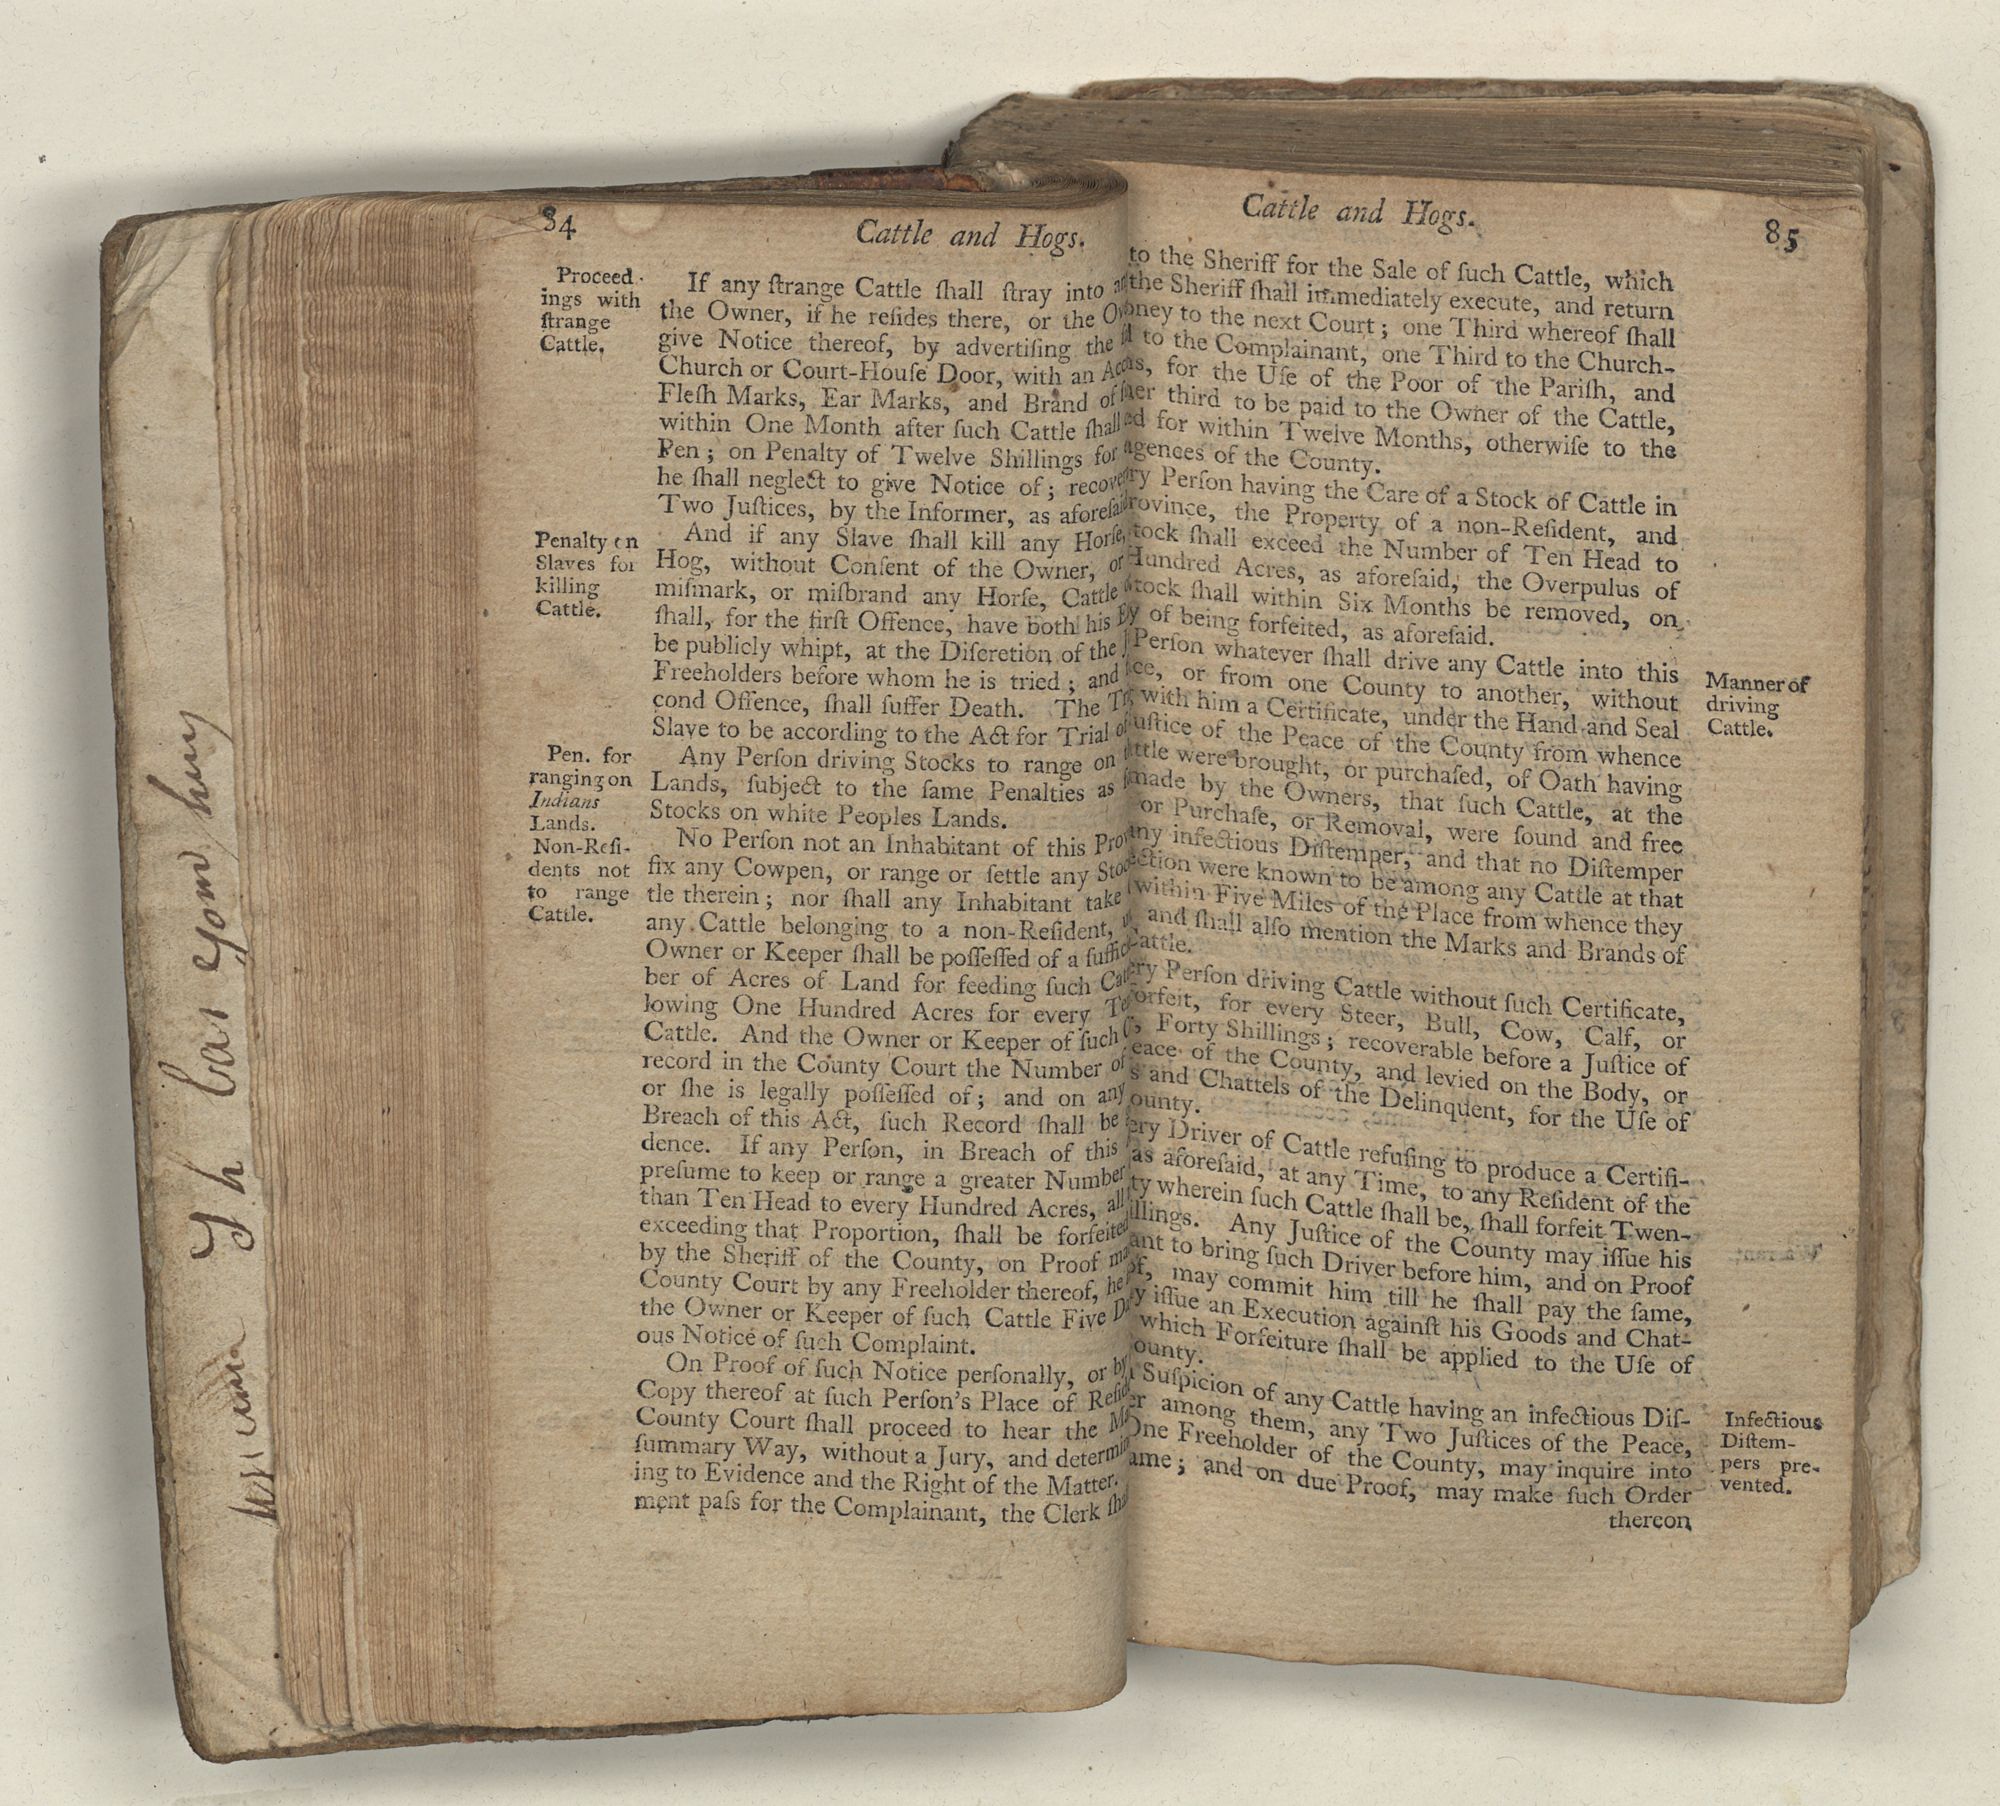 84
Cattle and Hogs.
Proceed-
ings with
ſtrange
Cattle.
If any ſtrange Cattle ſhall ſtray into
the Owner, if he reſides there, or the
give Notice thereof, by advertiſing the
Church or Court-Houſe Door, with an
Fleſh Marks, Ear Marks, and Brand of
within One Month after ſuch Cattle ſhall
Pen; on Penalty of Twelve Shillings for
he ſhall neglect to give Notice of; recove
Two Juſtices, by the Informer, as aforeſaid
Penalty on
Slaves for
killing
Cattle.
And if any Slave ſhall kill any Horſe,
Hog, without Conſent of the Owner, or
miſmark, or miſbrand any Horſe, Cattle
ſhall, for the firſt Offence, have both his
be publicly whipt, at the Diſcretion of the
Freeholders before whom he is tried; and
cond Offence, ſhall ſuffer Death. The
Slave to be according to the Act for Trial of
Pen. for
ranging on
Indians
Lands.
Any Perſon driving Stocks to range on
Lands, ſubject to the ſame Penalties as
Stocks on white Peoples Lands.
Non-Reſi-
dents not
to range
Cattle.
No Perſon not an Inhabitant of this Pro
fix any Cowpen, or range or ſettle any Stoc
tle therein; nor ſhall any Inhabitant take
any Cattle belonging to a non-Reſident,
Owner or Keeper ſhall be poſſeſſed of a ſuffic
ber of Acres of Land for feeding ſuch Cat
lowing One Hundred Acres for every Te
Cattle. And the Owner or Keeper of ſuch
record in the County Court the Number of
or ſhe is legally poſſeſſed of; and on any
Breach of this Act, ſuch Record ſhall be
dence. If any Perſon, in Breach of this
preſume to keep or range a greater Number
than Ten Head to every Hundred Acres, all
exceeding that Proportion, ſhall be forfeited
by the Sheriff of the County, on Proof ma
County Court by any Freeholder thereof, he
the Owner or Keeper of ſuch Cattle Five
ous Notice of ſuch Complaint.
On Proof of ſuch Notice perſonally, or by
Copy thereof at ſuch Perſon's Place of Reſi
County Court ſhall proceed to hear the Ma
ſummary Way, without a Jury, and determin
ing to Evidence and the Right of the Matter.
ment paſs for the Complainant, the Clerk ſha
Cattle and Hogs.
85
to the Sheriff for the Sale of ſuch Cattle, which
the Sheriff ſhall immediately execute, and return
oney to the next Court; one Third whereof ſhall
to the Complainant, one Third to the Church-
s, for the Uſe of the Poor of the Pariſh, and
er third to be paid to the Owner of the Cattle,
ed for within Twelve Months, otherwiſe to the
gences of the County.
ry Perſon having the Care of a Stock of Cattle in
rovince, the Property of a non-Reſident, and
tock ſhall exceed the Number of Ten Head to
Hundred Acres, as aforeſaid, the Overpulus of
tock ſhall within Six Months be removed, on
y of being forfeited, as aforeſaid.
Manner of
driving
Cattle.
Perſon whatever ſhall drive any Cattle into this
ce, or from one County to another, without
with him a Certificate, under the Hand and Seal
uſtice of the Peace of the County from whence
ttle were brought, or purchaſed, of Oath having
made by the Owners, that ſuch Cattle, at the
or Purchaſe, or Removal, were found and free
any infectious Diſtemper, and that no Diſtemper
ection were known to be among any Cattle at that
within Five Miles of the Place from whence they
and ſhall alſo mention the Marks and Brands of
Cattle.
ery Perſon driving Cattle without ſuch Certificate,
orfeit, for every Steer, Bull, Cow, Calf, or
Forty Shillings; recoverable before a Juſtice of
eace of the County, and levied on the Body, or
s and Chattels of the Delinquent, for the Uſe of
ounty.
ery Driver of Cattle refuſing to produce a Certifi-
as aforeſaid, at any Time, to any Reſident of the
ty wherein ſuch Cattle ſhall be, ſhall forfeit Twen-
illings. Any Juſtice of the County may iſſue his
ant to bring ſuch Driver before him, and on Proof
of, may commit him till he ſhall pay the ſame,
y iſſue an Execution againſt his Goods and Chat-
which Forfeiture ſhall be applied to the Uſe of
ounty.
Infectious
Diſtem-
pers pre-
vented.
Suſpicion of any Cattle having an infectious Diſ-
er among them, any Two Juſtices of the Peace,
One Freeholder of the County, may inquire into
ame; and on due Proof, may make ſuch Order
thereon